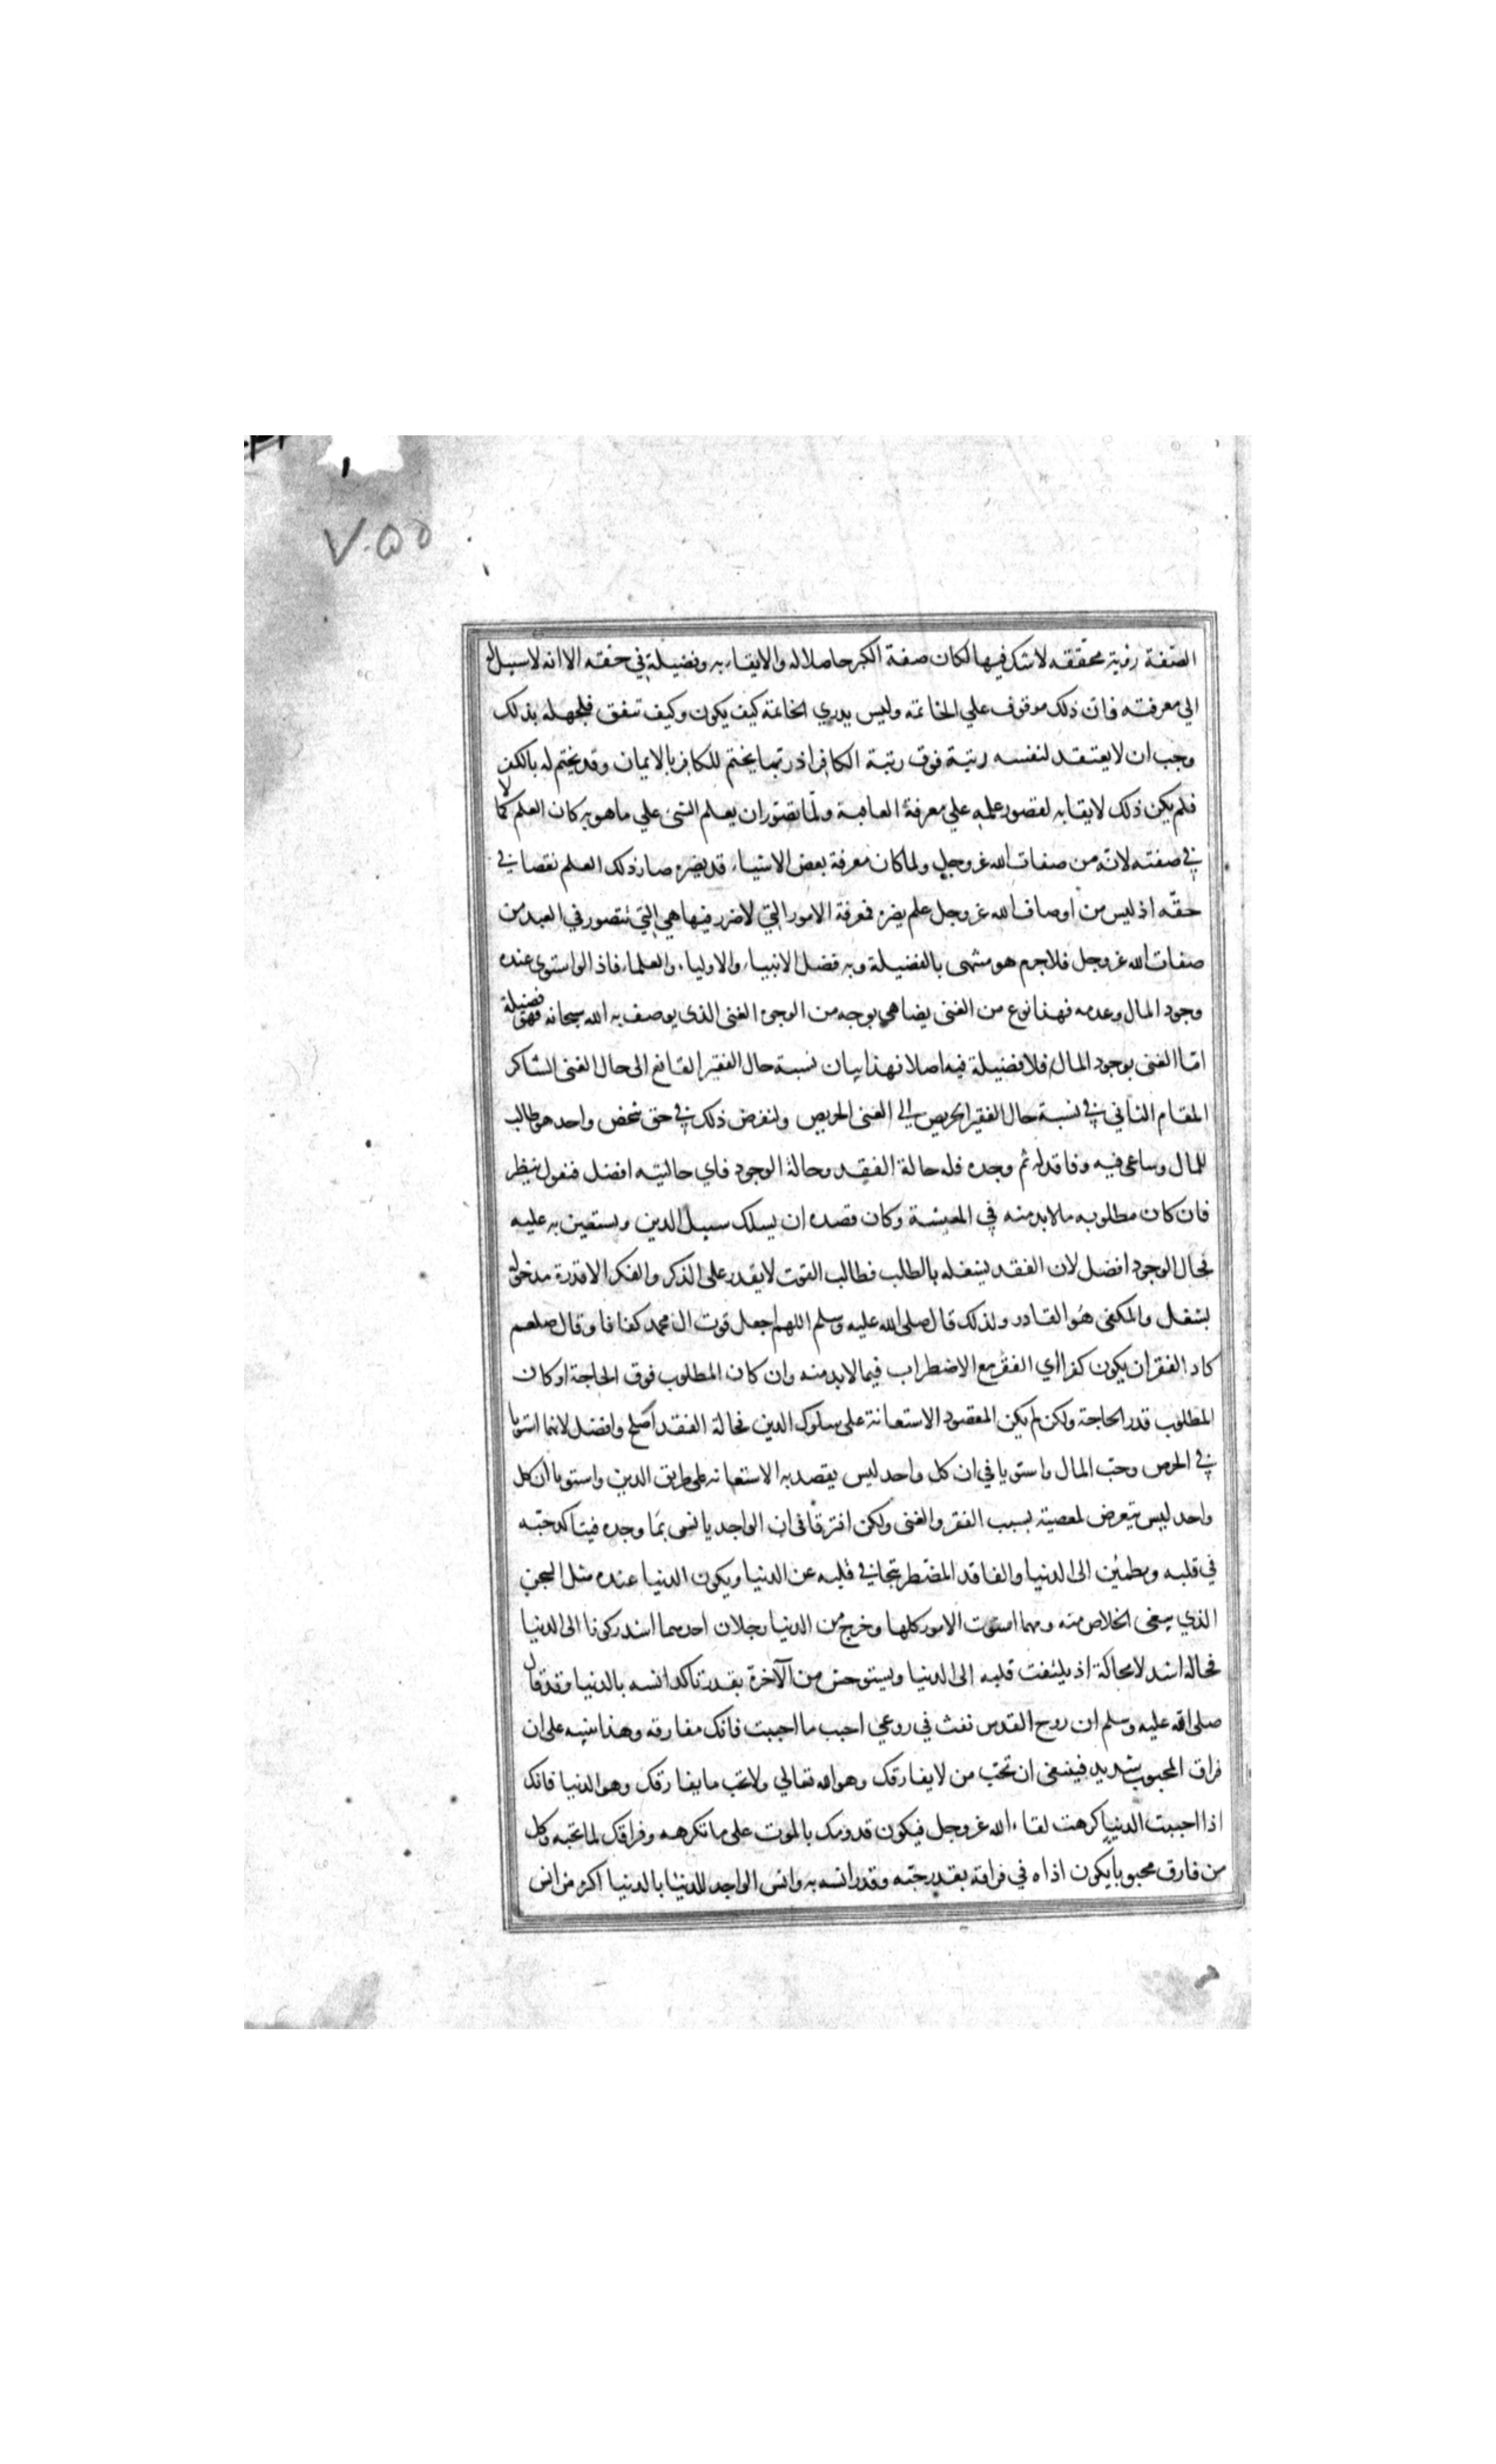 ٧٠٥٥
الصفة رؤية محققه لاشك فيها لكان صفة الكبر حاصلا له ولايقا به وفضيلة في حقه الا انه لاسبيل له
الي معرفته فان ذلك موقوف علي الخاتمه وليس يدري الخاتمة كيف يكون وكيف تتفق فلجهله بذلك
وجب ان لايعتقد لنفسه رتبة فوق رتبة الكافر اذ ربما يختم للكافر بالايمان وقد يختم له بالكفر
فلم يكن ذلك لايقا به لقصور علمه علي معرفة العاقبة ولما تصور ان يعلم الشئ علي ماهو به كان العلم كمالا
في صفته لانه من صفات الله عز وجل ولما كان معرفة بعض الاشياء قد يضره صار ذلك العلم نقصا في
حقه اذ ليس من اوصاف الله عز وجل علم يضره فمعرفة الامور التي لاضرر فيها هي التي تتصور في العبد من
صفات الله عز وجل فلاجرم هو منتهى بالفضيلة وبه فضل الانبياء والاولياء والعلماء فاذا لو استوى عنده
وجود المال وعدمه فهذا نوع من الغنى يضاهي بوجه من الوجوه الغنى الذي يوصف به الله سبحانه فهو فضيلة
امّا الغنى بوجود المال فلا فضيلة فيه اصلا فهذا بيان نسبة حال الفقير القانع الى حال الغنى الشاكر
المقام الثاني في نسبة حال الفقير الحريص الي الغنى الحريص ولنفرض ذلك في حق شخص واحد هو طالب
للمال وساعى فيه وفاقد له ثم وجده فله حالة الفقد وحالة الوجود فاي حالتيه افضل فنقول ينظر
فان كان مطلوبه مالابد منه في المعيشة وكان قصده ان يسلك سبيل الدين ويستعين به عليه
فحال الوجود افضل لان الفقد يشغله بالطلب فطالب القوت لايقدر على الذكر والفكر الا قدرة مدخولة
بشغل والمكفى هو القادر ولذلك قال صلى الله عليه وسلم اللهم اجعل قوت ال محمد كفافا وقال صلعم
كاد الفقر ان يكون كفرا اي الفقر مع الاضطراب فيما لابد منه وان كان المطلوب فوق الحاجة او كان
المطلوب قدر الحاجة ولكن لم يكن المقصود الاستعانة على سلوك الدين فحالة الفقد اصلح وافضل لانهما استويا
في الحرص وحب المال واستويا في ان كل واحد ليس يقصد به الاستعانه على طريق الدين واستويا ان كل
واحد ليس يتعرض لمعصية بسبب الفقر والغنى ولكن افترقا فى ان الواجد يانس بما وجده فيتاكد حبّه
في قلبه ويطمئن الى الدنيا والفاقد المضطر يتجافي قلبه عن الدنيا ويكون الدنيا عنده مثل السجن
الذي يبغى الخلاص منه ومهما استوت الامور كلها وخرج من الدنيا رجلان احدهما اشد ركونا الى الدنيا
فحاله اشد لامحالة اذ يلتفت قلبه الى الدنيا ويستوحش من الآخرة بقدر تاكد انسه بالدنيا وقد قال
صلى الله عليه وسلم ان روح القدس نفث في روعي احبب ما احببت فانك مفارقه وهذا تنبيه على ان
فراق المحبوب شديد فينبغى ان تحب من لايفارقك وهو الله تعالي ولاتحب مايفارقك وهو الدنيا فانك
اذا احببت الدنيا كرهت لقاء الله عز وجل فيكون قدومك بالموت على ماتكرهه وفراقك لما تحبه وكل
من فارق محبوبا يكون اذاه في فراقه بقدر حبّه وقدر انسه به وانس الواجد للدنيا بالدنيا اكثر من انس